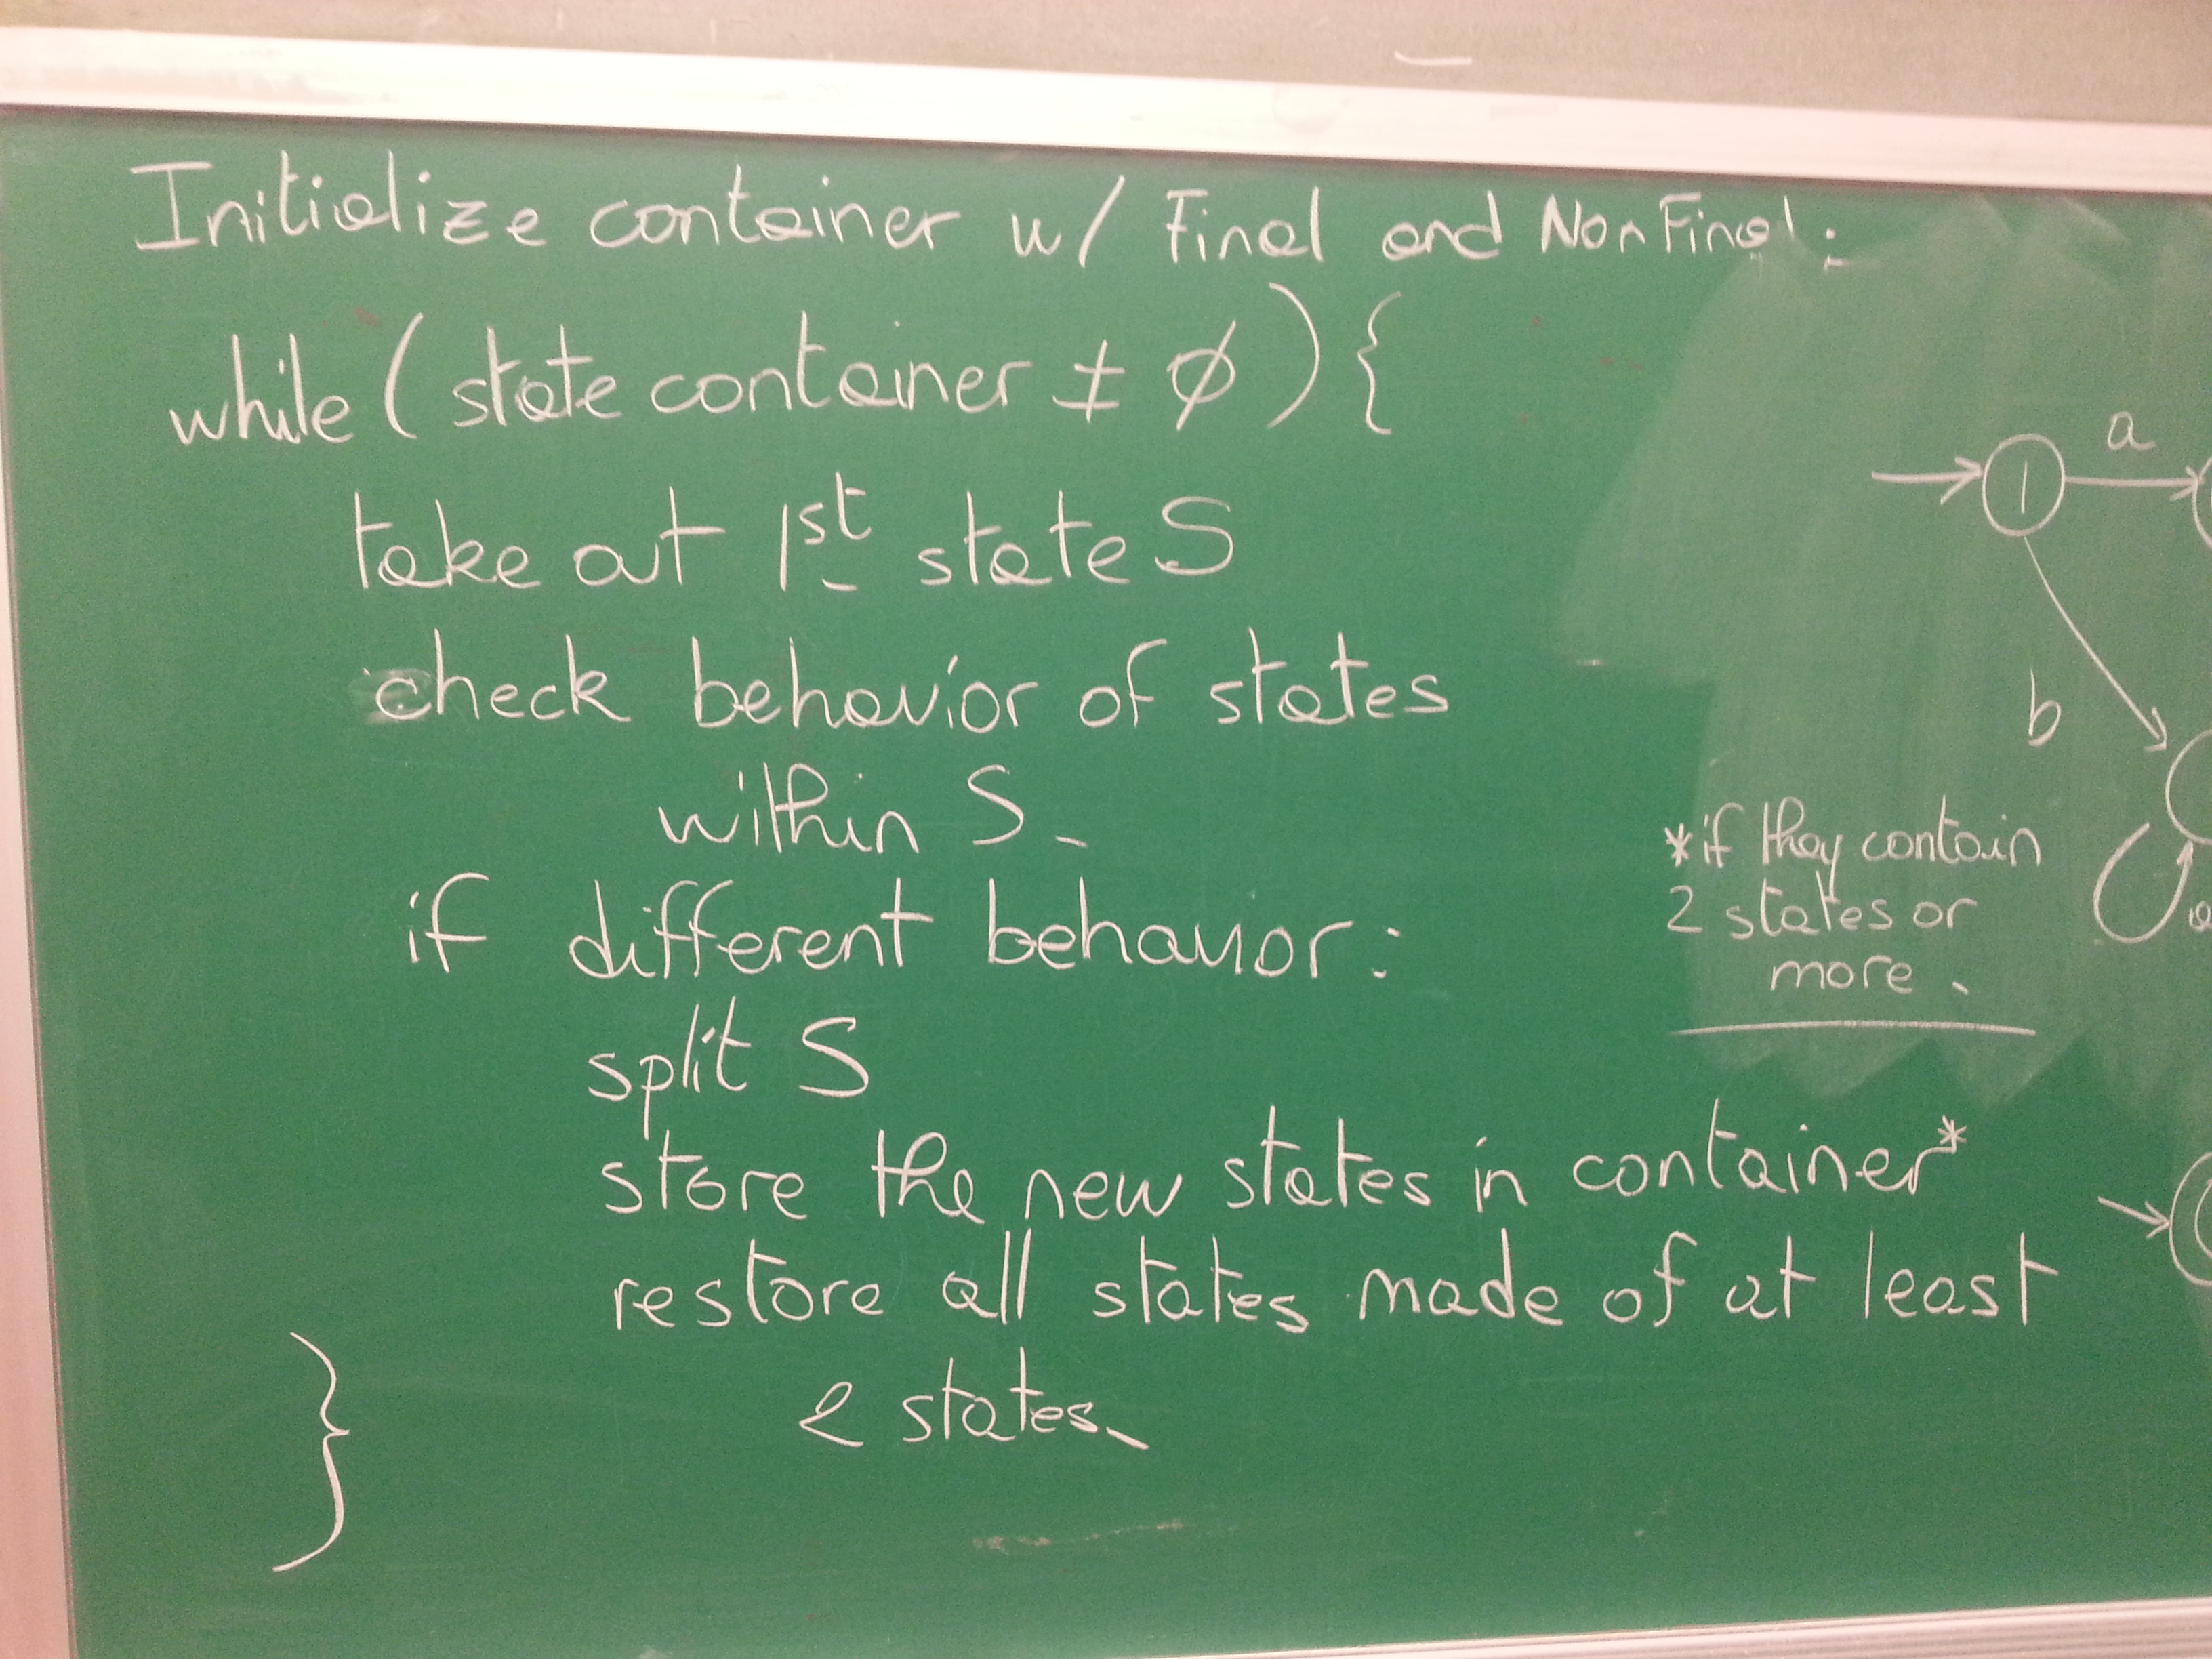 Initialize container w/ Final and NonFinal.
while (state container ≠ ∅) {
take out 1st state S
check behavior of states
within S.
if different behavior:
split S
store the new states in container*
restore all states made of at least
2 states.
}
*if they contain
2 states or
more.
1
a
b